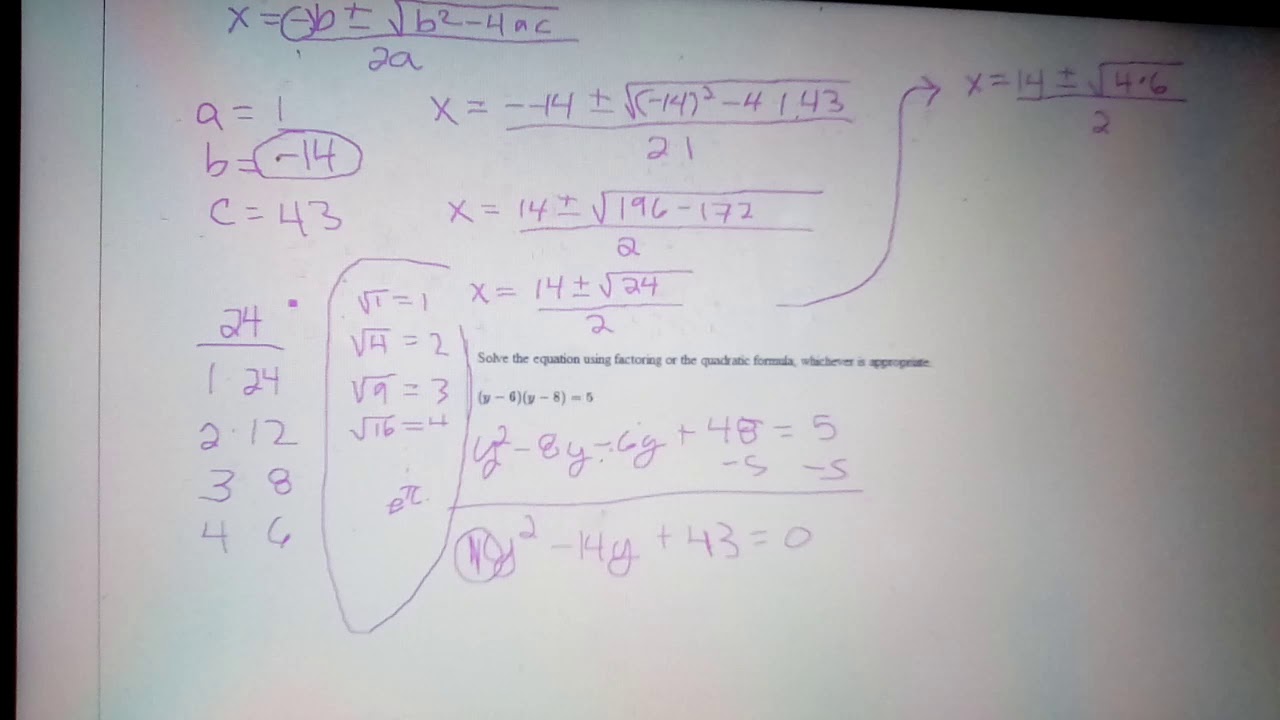 x = -b ± √b² - 4ac
2a
a = 1
b = -14
c = 43
x = --14 ± √(-14)² - 4 1.43
2 1
x = 14 ± √196 - 172
2
x = 14 ± √24
2
x = 14 ± √4·6
2
24
1 24
2·12
3 8
4 6
√1 = 1
√4 = 2
√9 = 3
√16 = 4
Solve the equation using factoring or the quadratic formula, whichever is appropriate.
(y − 6)(y − 8) = 5
y² - 8y - 6y + 48 = 5
-5 -5
y² - 14y + 43 = 0